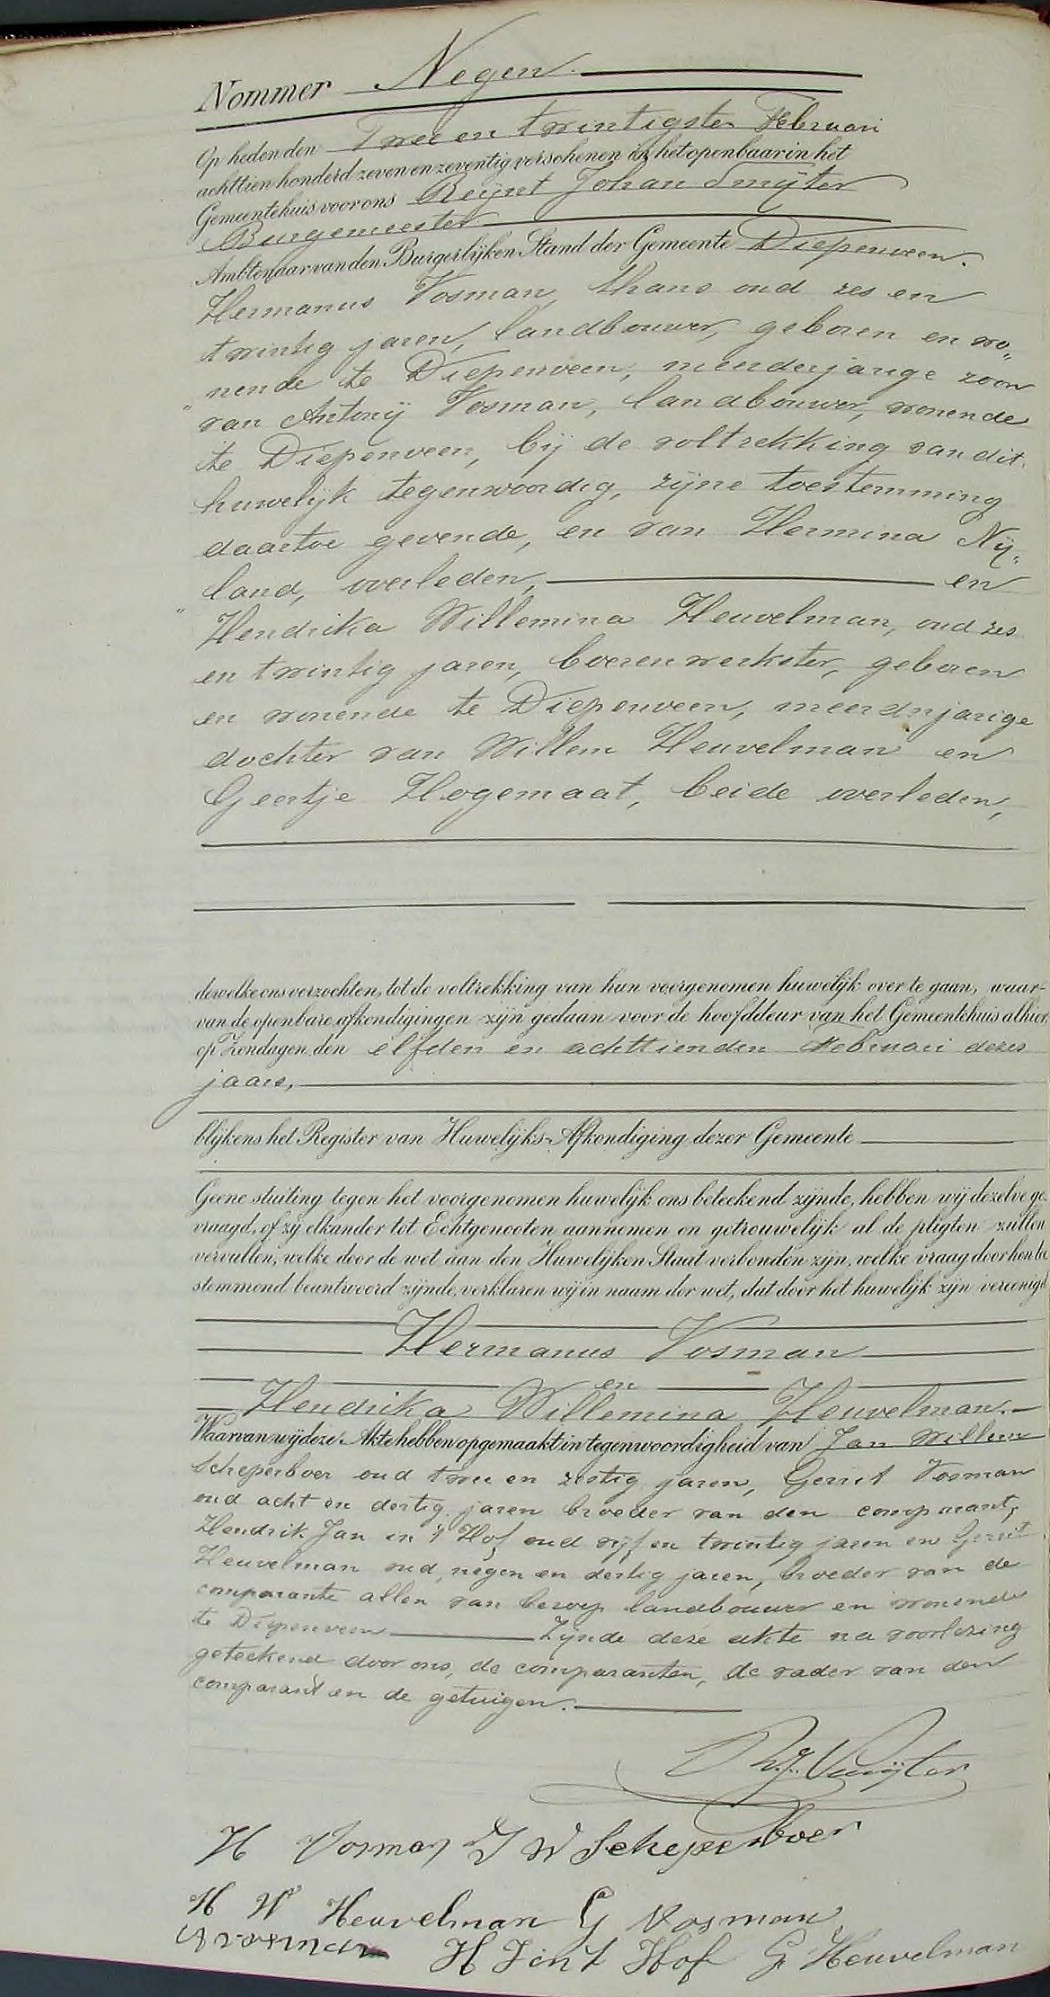 Nommer Negen.
Op heden den Twee en twintigsten Februari
achttien honderd zeven en zeventig verschenen in het openbaar in het
Gemeentehuis voor ons Reijnt Johan Smijter
Burgemeester
Ambtenaar van den Burgerlijken Stand der Gemeente Diepenveen.
Hermanus Vosman, thans oud zes en
twintig jaren, landbouwer, geboren en wo„
nende te Diepenveen, meerderjarige zoon
van Antonij Vosman, landbouwer, wonende
te Diepenveen, bij de voltrekking van dit
huwelijk tegenwoordig, zijne toestemming
daartoe gevende, en van Hermina Nij„
land, overleden, en
Hendrika Willemina Heuvelman, oud zes
en twintig jaren, boerenwerkster, geboren
en wonende te Diepenveen, meerderjarige
dochter van Willem Heuvelman en
Geertje Hogemaat, beide overleden,
dewelke ons verzochten, tot de voltrekking van hun voorgenomen huwelijk over te gaan, waar-
van de openbare afkondigingen zijn gedaan voor de hoofddeur van het Gemeentehuis alhier,
op Zondagen den elfden en achttienden Februari dezes
jaars,
blijkens het Register van Huwelijks-Afkondiging dezer Gemeente
Geene stuiting tegen het voorgenomen huwelijk ons beteekend zijnde, hebben wij dezelve ge-
vraagd, of zij elkander tot Echtgenooten aannemen en getrouwelijk al de pligten zullen
vervullen, welke door de wet aan den Huwelijken Staat verbonden zijn, welke vraag door hen toe
stemmend beantwoord zijnde, verklaren wij in naam der wet, dat door het huwelijk zijn vereenigd
Hermanus Vosman
en
Hendrika Willemina Heuvelman.
Waarvan wij deze Akte hebben opgemaakt in tegenwoordigheid van Jan Willem
Scheperboer oud twee en zestig jaren, Gerrit Vosman
oud acht en dertig jaren broeder van den comparant,
Hendrik Jan in 't Hof oud vijf en twintig jaren en Gerrit
Heuvelman oud negen en dertig jaren, broeder van de
comparante allen van beroep landbouwer en wonende
te Diepenveen Zijnde deze akte na voorlezing
geteekend door ons, de comparanten, de vader van den
comparant en de getuigen.
R.J. Smijter
H Vosman J W Scheperboer
H W Heuvelman G Vosman
A vosman H J in t Hof G Heuvelman